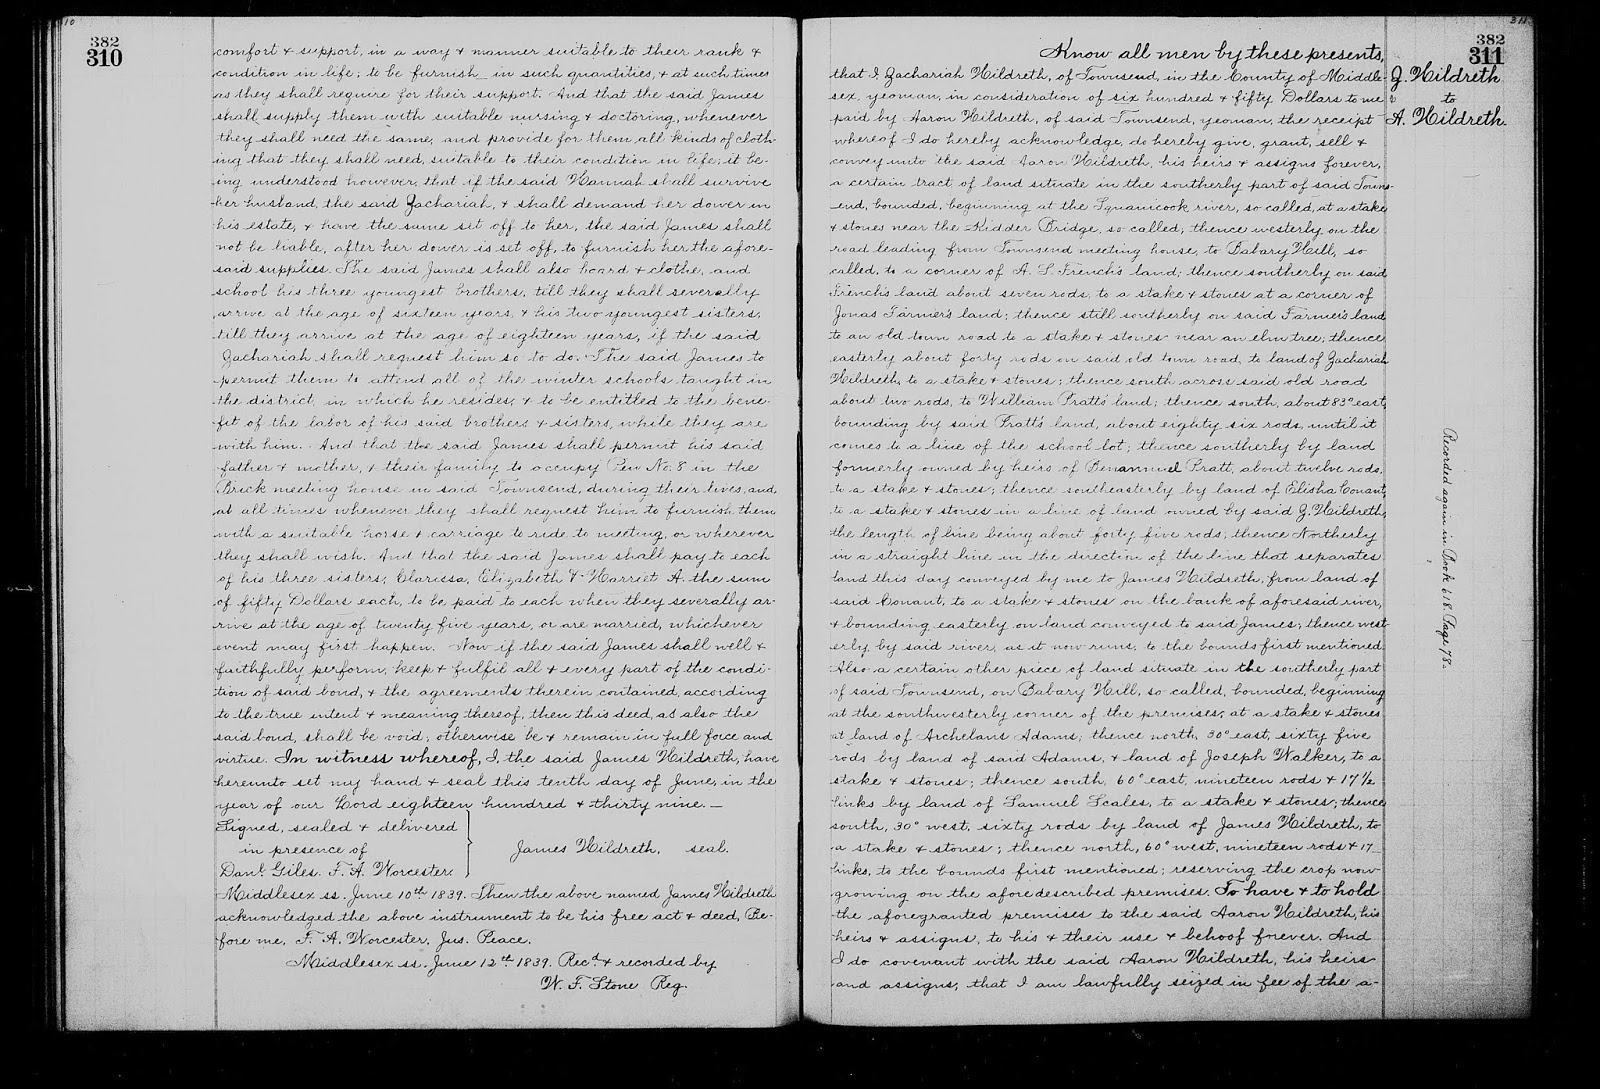 10
382
310
comfort & support, in a way & manner suitable to their rank &
condition in life; to be furnish_ in such quantities, & at such times
as they shall require for their support. And that the said James
shall supply them with suitable nursing & doctoring, whenever
they shall need the same, and provide for them all kinds of cloth-
ing that they shall need, suitable to their condition in life; it be-
ing understood however, that if the said Hannah shall survive
her husband, the said Zachariah, & shall demand her dower in
his estate, & have the same set off to her, the said James shall
not be liable, after her dower is set off, to furnish her the afore-
said supplies. The said James shall also board & clothe, and
school his three youngest brothers, till they shall severally
arrive at the age of sixteen years, & his two youngest sisters,
till they arrive at the age of eighteen years, if the said
Zachariah shall request him so to do. The said James to
permit them to attend all of the winter schools taught in
the district, in which he resides, & to be entitled to the bene-
fit of the labor of his said brothers & sisters, while they are
with him. And that the said James shall permit his said
father & mother, & their family to occupy Pew No. 8 in the
Brick meeting house in said Townsend, during their lives, and,
at all times whenever they shall request him to furnish them
with a suitable horse & carriage to ride to meeting, or wherever
they shall wish. And that the said James shall pay to each
of his three sisters, Clarissa, Elizabeth & Harriet A. the sum
of fifty Dollars each, to be paid to each when they severally ar-
rive at the age of twenty five years, or are married, whichever
event may first happen. Now if the said James shall well &
faithfully perform, keep & fulfil all & every part of the condi-
tion of said bond, & the agreements therein contained, according
to the true intent & meaning thereof, then this deed, as also the
said bond, shall be void; otherwise be & remain in full force and
virtue. In witness whereof, I, the said James Hildreth, have
hereunto set my hand & seal this tenth day of June, in the
year of our Lord eighteen hundred & thirty nine. —
Signed, sealed & delivered
in presence of
James Hildreth. seal.
Danl. Giles. F. A. Worcester.
Middlesex ss. June 10th 1839. Then the above named James Hildreth
acknowledged the above instrument to be his free act & deed, Be-
fore me, F. A. Worcester, Jus. Peace.
Middlesex ss. June 12th 1839. Recd. & recorded by
W. F. Stone Reg.
311
382
311
Z. Hildreth
to
A. Hildreth.
Know all men by these presents,
that I Zachariah Hildreth, of Townsend, in the County of Middle-
sex, yeoman, in consideration of six hundred & fifty Dollars to me
paid by Aaron Hildreth, of said Townsend, yeoman, the receipt
whereof I do hereby acknowledge, do hereby give, grant, sell &
convey unto the said Aaron Hildreth, his heirs & assigns forever,
a certain tract of land situate in the southerly part of said Towns-
end, bounded, beginning at the Squanicook river, so called, at a stake
& stones near the Kidder Bridge, so called; thence westerly on the
road leading from Townsend meeting house, to Babary Hill, so
called, to a corner of A. S. French's land; thence southerly on said
French's land about seven rods, to a stake & stones at a corner of
Jonas Farmer's land; thence still southerly on said Farmer's land
to an old town road to a stake & stones near an elm tree; thence
easterly about forty rods on said old town road, to land of Zachariah
Hildreth, to a stake & stones; thence south across said old road
about two rods, to William Pratt's land; thence south, about 83° east,
bounding by said Pratt's land, about eighty six rods, until it
comes to a line of the school lot; thence southerly by land
formerly owned by heirs of Benanniel Pratt, about twelve rods,
to a stake & stones; thence southeasterly by land of Elisha Conant,
to a stake & stones in a line of land owned by said Z. Hildreth,
the length of line being about forty five rods; thence Northerly
in a straight line in the direction of the line that separates
land this day conveyed by me to James Hildreth, from land of
said Conant, to a stake & stones on the bank of aforesaid river,
& bounding easterly on land conveyed to said James; thence west-
erly by said river, as it now runs, to the bounds first mentioned.
Also a certain other piece of land situate in the southerly part
of said Townsend, on Babary Hill, so called, bounded, beginning
at the southwesterly corner of the premises, at a stake & stones
at land of Archelaus Adams; thence north, 30° east, sixty five
rods by land of said Adams, & land of Joseph Walker, to a
stake & stones; thence south, 60° east, nineteen rods & 17 1/2
links by land of Samuel Scales, to a stake & stones; thence
south, 30° west, sixty rods by land of James Hildreth, to
a stake & stones; thence north, 60° west, nineteen rods & 17
links, to the bounds first mentioned; reserving the crop now
growing on the aforedescribed premises. To have & to hold
the aforegranted premises to the said Aaron Hildreth, his
heirs & assigns, to his & their use & behoof forever. And
I do covenant with the said Aaron Hildreth, his heirs
and assigns, that I am lawfully seized in fee of the a-
Recorded again in Book 618. Page 78.